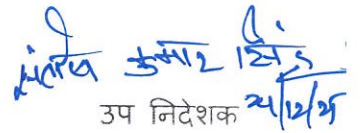 संतोष कुमार सिंह
उप निदेशक 24/12/25